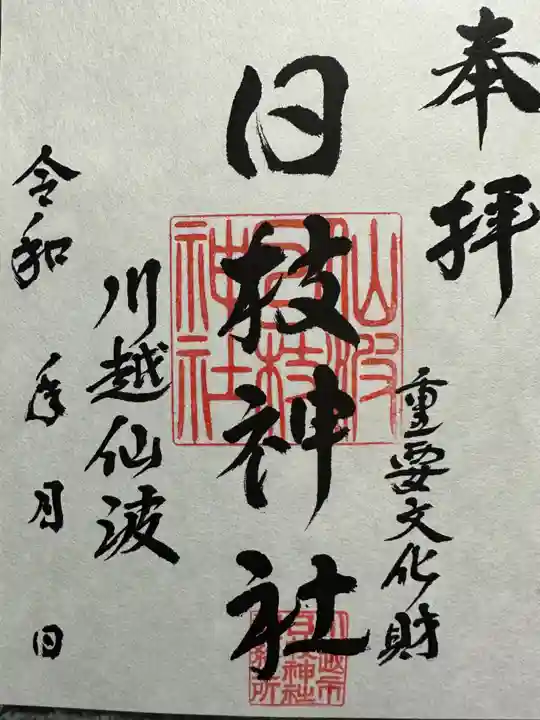 奉拝
重要文化財
日枝神社
仙波
日枝
神社
川越市
日枝神社
務所
川越仙波
令和 年 月 日